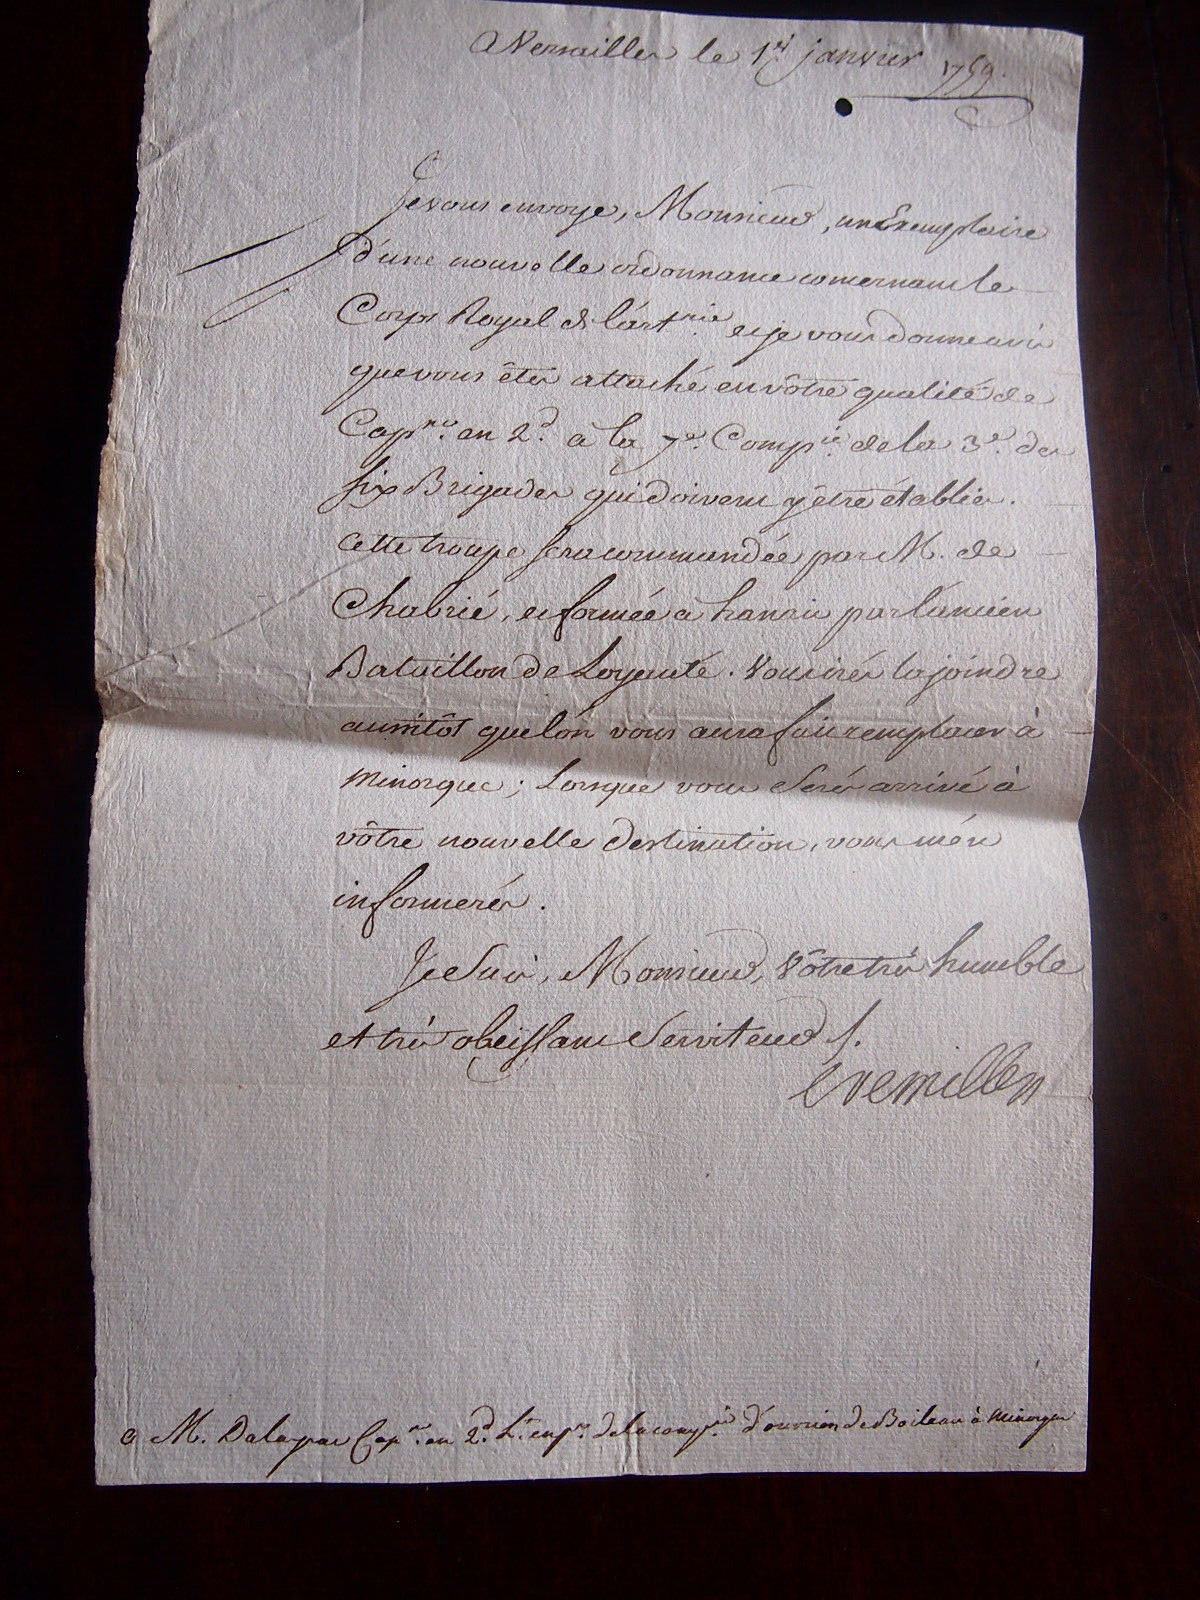 A Versailles le 1er janvier 1759.
Je vous envoye, Monsieur, un Exemplaire
d'une nouvelle ordonnance concernant le
Corps Royal de l'artrie. et je vous donne avis
que vous êtes attaché en vôtre qualité de
Capne. en 2d. à la 7e. Compie. de la 3e. des
six Brigades qui doivent y être établies.
Cette troupe sera commandée par M. de
Chabrié, et formée à hanau par l'ancien
Bataillon de Loyauté. Vous irés la joindre
aussitôt que l'on vous aura fait remplacer à
Minorque; Lorsque vous Serés arrivé à
vôtre nouvelle destination, vous m'en
informerés.
Je Suis, Monsieur, Vôtre très humble
et très obeissant Serviteur /.
Cremilles
a M. Capne. en 2d. Lt. en pr. de la compie. d'ouvriers de Boileau à Minorque